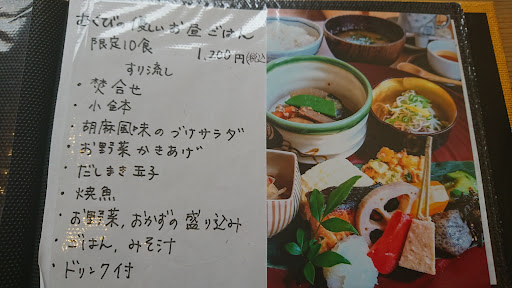 むくびの優しいお昼ごはん
限定10食
1,200円(税込)
すり流し
・焚合せ
・小鉢
・胡麻風味のづけサラダ
・お野菜かきあげ
・だしまき玉子
・焼魚
・お野菜,おかずの盛り込み
・ごはん,みそ汁
・ドリンク付